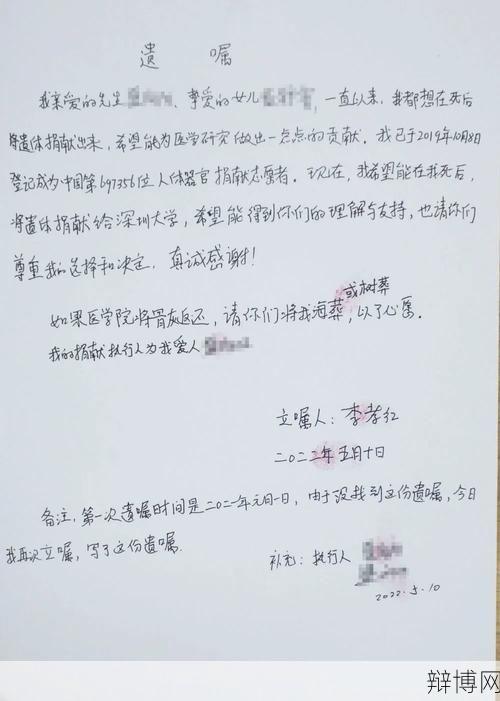 遗 嘱
我亲爱的先生 、挚爱的女儿 ，一直以来，我都想在死后
将遗体捐献出来，希望能为医学研究做出一点点的贡献。我已于2019年10月8日
登记成为中国第697356位人体器官捐献志愿者。现在，我希望能在我死后，
将遗体捐献给深圳大学，希望能得到你们的理解与支持，也请你们
尊重我的选择和决定。真诚感谢！
或树葬
如果医学院将骨灰返还，请你们将我海葬，以了心愿。
我的捐献执行人为我爱人
立嘱人：李孝红
二〇二二年五月十日
备注，第一次遗嘱时间是二〇二一年元月一日，由于没找到这份遗嘱，今日
我再次立嘱，写了这份遗嘱.
补充：执行人
2022.5.10
辩博网